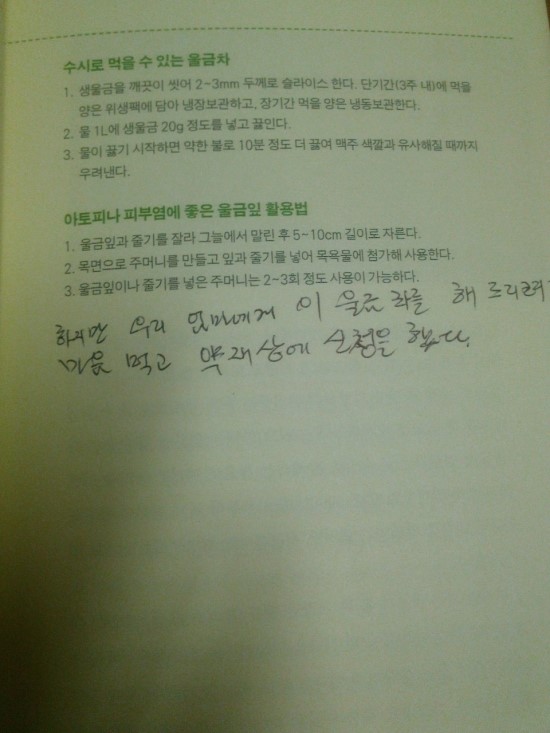 수시로 먹을 수 있는 울금차
1. 생울금을 깨끗이 씻어 2~3mm 두께로 슬라이스 한다. 단기간(3주 내)에 먹을
양은 위생팩에 담아 냉장보관하고, 장기간 먹을 양은 냉동보관한다.
2. 물 1L에 생울금 20g 정도를 넣고 끓인다.
3. 물이 끓기 시작하면 약한 불로 10분 정도 더 끓여 맥주 색깔과 유사해질 때까지
우려낸다.
아토피나 피부염에 좋은 울금잎 활용법
1. 울금잎과 줄기를 잘라 그늘에서 말린 후 5~10cm 길이로 자른다.
2. 목면으로 주머니를 만들고 잎과 줄기를 넣어 목욕물에 첨가해 사용한다.
3. 울금잎이나 줄기를 넣은 주머니는 2~3회 정도 사용이 가능하다.
하지만 우리 엄마에게 이 울금 차를 해 드리려
마음 먹고 약재상에 신청을 했다.